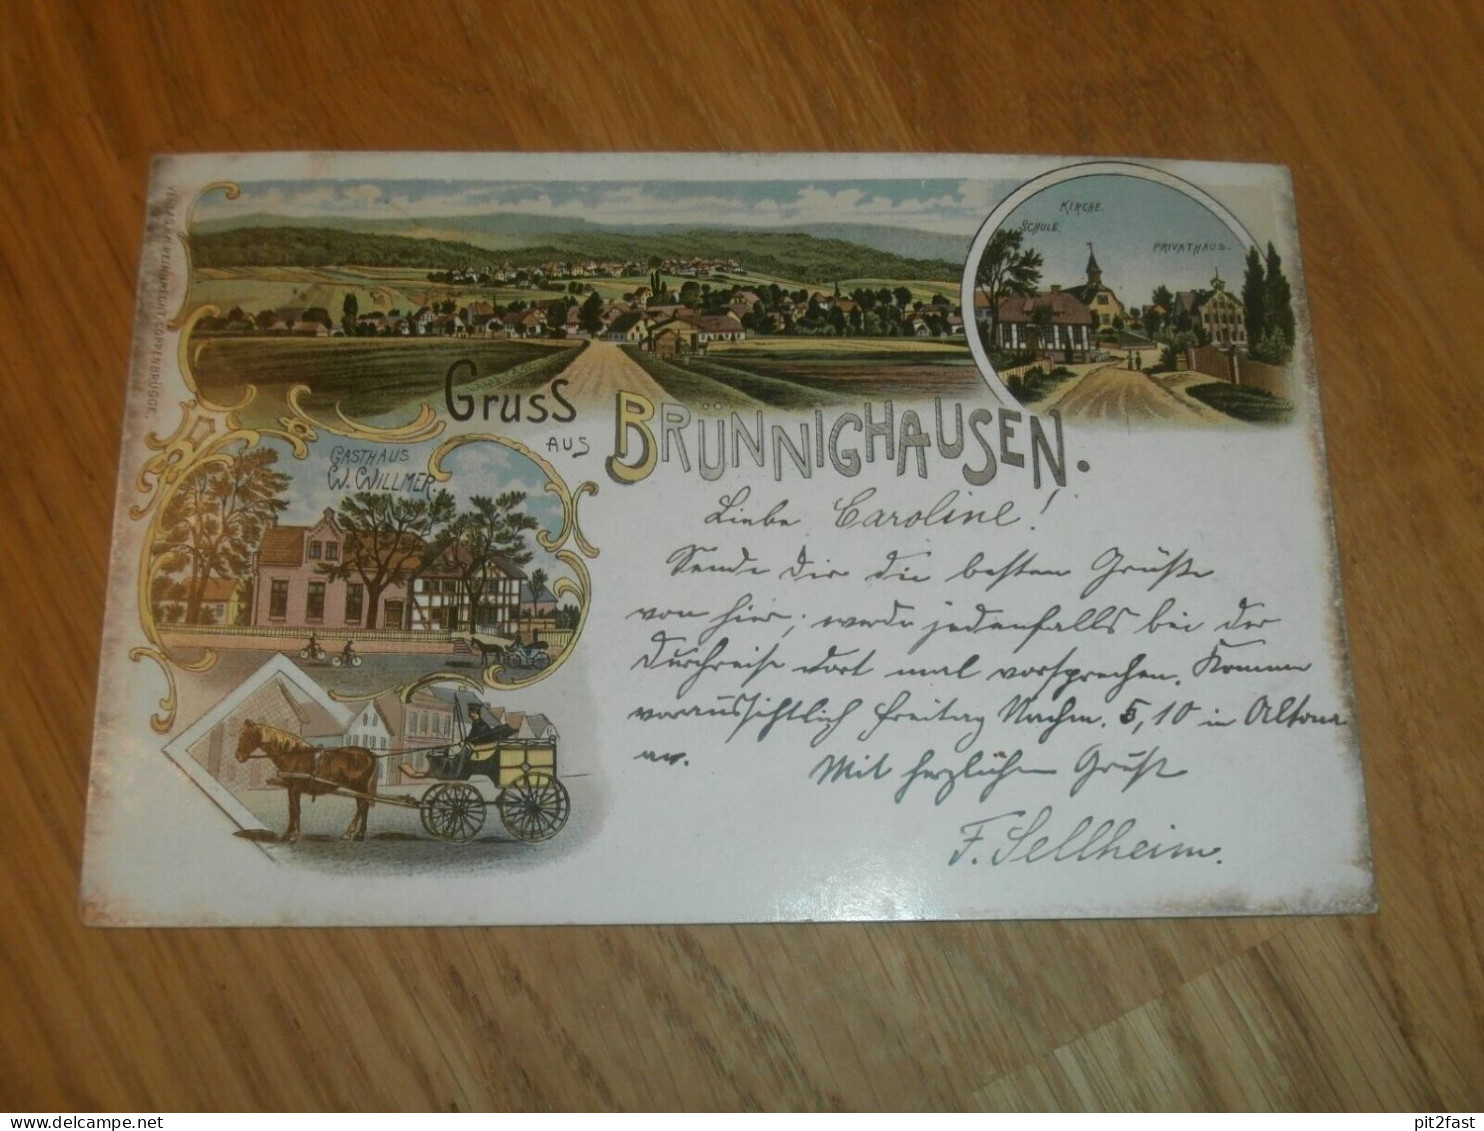 KIRCHE.
SCHULE.
PRIVATHAUS.
GRUSS
AUS BRÜNNIGHAUSEN.
GASTHAUS
W. WILLMER.
Liebe Caroline!
Sende dir die besten Grüße
von hier; werde jedenfalls bei der
Durchreise dort mal vorsprechen. Komme
voraussichtlich Freitag Nachm. 5,10 in Altona
an. Mit herzlichem Gruß
F. Sellheim.
COPPENBRÜGGE.
pit2fast